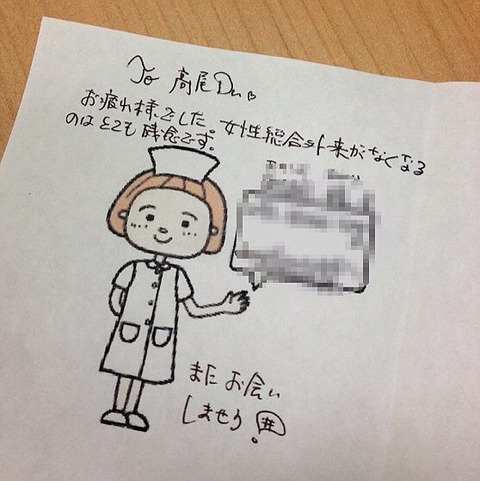 To 高尾Dr.♡
お疲れ様でした。女性総合外来がなくなる
のはとても残念です。
またお会い
しましょう